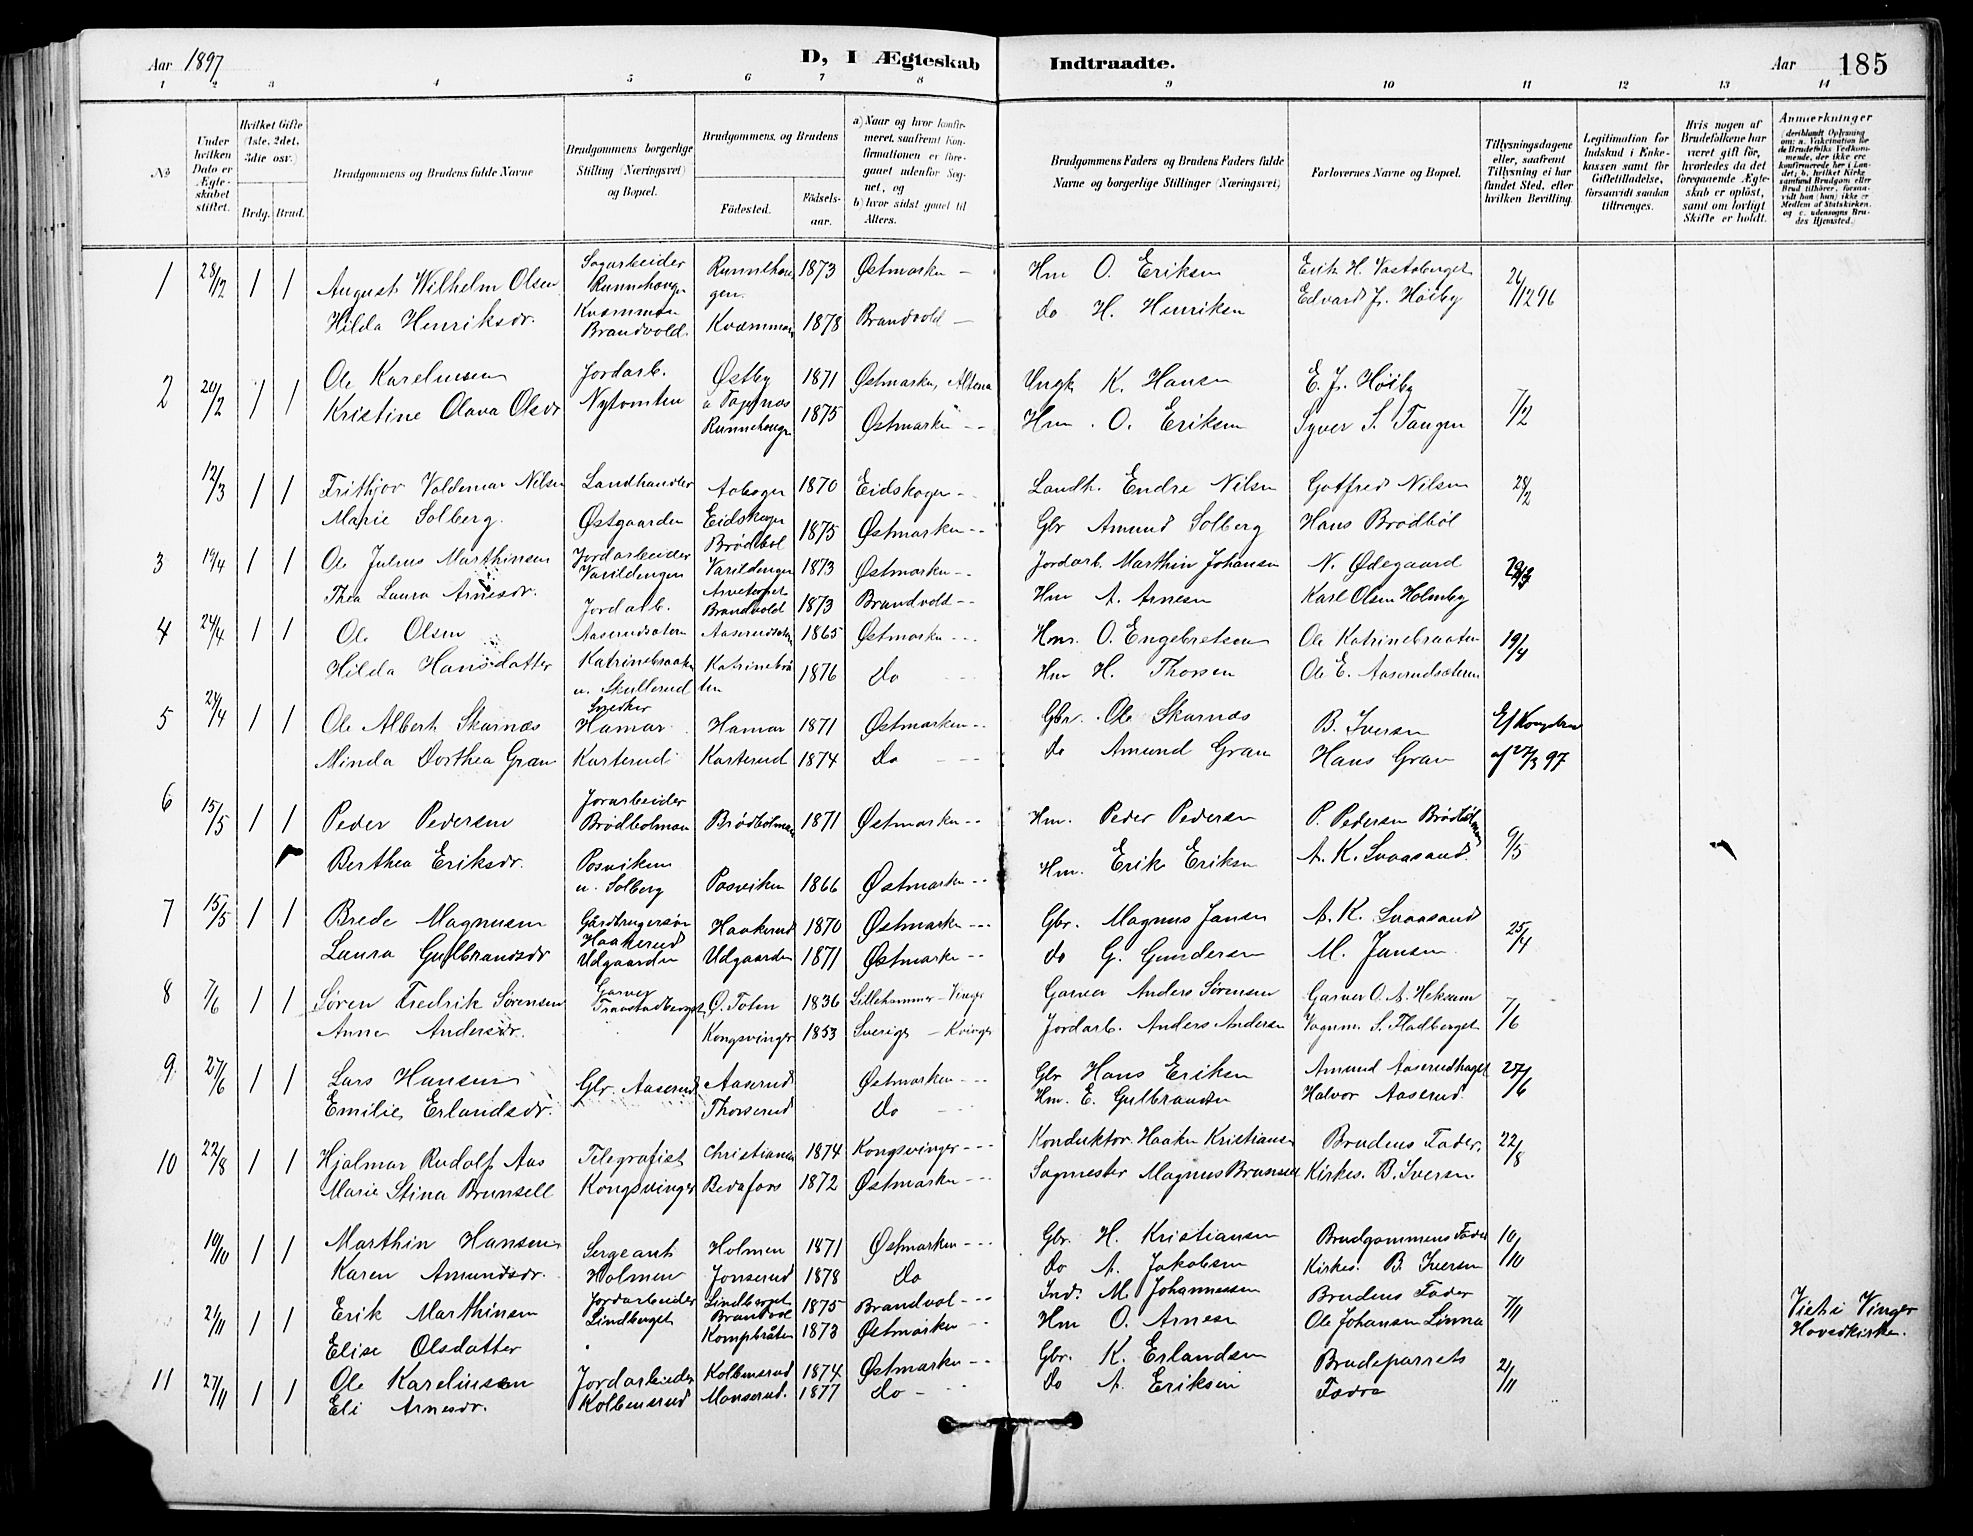 Aar 1897 D, I Ægteskab Indtraadte. Aar 185
1 2 3 4 5 6 7 8 9 10 11 12 13 14
No
Under hvilken Dato er Ægteskabet stiftet.
Hvilket Gifte (1ste, 2det, 3die osv.)
Brdg. Brud.
Brudgommens og Brudens fulde Navne
Brudgommens borgerlige Stilling (Næringsvei) og Bopæl.
Brudgommens, og Brudens
Fødested.
Fødselsaar.
a) Naar og hvor konfirmeret, saafremt Konfirmationen er foregaaet udenfor Sognet, og
b) hvor sidst gaaet til Alters.
Brudgommens Faders og Brudens Faders fulde Navne og borgerlige Stillinger (Næringsvei)
Forlovernes Navne og Bopæl.
Tillysningsdagene eller, saafremt Tillysning ei har fundet Sted, efter hvilken Bevilling.
Legitimation for Indskud i Enkekassen samt for Giftetilladelse, forsaavidt saadan tiltrænges.
Hvis nogen af Brudefolkene har været gift før, hvorledes da det foregaaende Ægteskab er opløst, samt om lovligt Skifte er holdt.
Anmerkninger
(deriblandt Oplysning om: a. Vakcination for de Brudefolks Vedkommende, der ikke ere konfirmerede her i Landet; b. hvilket Kirkesamfund Brudgom eller Brud tilhører, forsaavidt han (hun) ikke er Medlem af Statskirken, og c. udensogns Brudes Hjemsted.
1 28/2 1 1 August Wilhelm Olsen Sagarbeider Runnehougen Runnehougen 1873 Østmarken Hm O. Eriksen Erik H. Vastaberget 26/12 96
Hilda Henriksdr. Kvæmmen Brandvold. Kvæmmen 1878 Brandvold do H. Henriksen Edvard J. Høiby
2 20/2 1 1 Ole Kareliusen Jordarb. Østby 1871 Østmarken, Altona Ungk K. Hansen E. J. Høiby 7/2
Kristine Olava Olsdr Nytomten Runnehougen 1875 Østmarken Hm O. Eriksen Syver S. Tangen
12/3 1 1 Frithjov Valdemar Nilsen Landhandler Aabogen Eidskogen 1870 Eidskogen Landh. Endre Nilsen Gotfred Nilsen 28/2
Marie Solberg. Østgaarden Brødbøl 1875 Østmarken Gbr Amund Solberg Hans Brødbøl
3 19/4 1 1 Ole Julius Marthinsen Jordarbeider Varildengen Varildengen 1873 Østmarken Jordarb. Marthin Johansen N. Ødegaard
Thea Laura Arnesdr. Arnetorpet Brandvold 1873 Brandvold Hm A. Arnesen Karl Olsen Holmby
4 24/4 1 1 Ole Olsen Jordarb. Aaserudsætern Aaserudsætern 1865 Østmarken Hm. O. Engebretsen Ole Katrinebraaten 19/4
Hilda Hansdatter Katrinebraaten u. Skullerud Katrinebråten 1876 Do Hm H. Thorsen Ole E. Aaserudsæteren
5 24/4 1 1 Ole Albert Skarnæs Snedker Hamar Hamar 1871 Østmarken Gbr. Ole Skarnæs B. Iversen
Minda Dorthea Gran Karterud Karterud 1874 Do do Amund Gran Hans Gran af 27/3 97
6 15/5 1 1 Peder Pedersen Jorarbeider Brødbølman Brødbølman 1871 Østmarken Hm. Peder Pedersen P. Pedersen Brødbølman 9/5
Berthea Eriksdr. Posviken u. Solberg Posviken 1866 Østmarken Hm. Erik Eriksen A. K. Svaasand.
7 15/5 1 1 Brede Magnusen Gårdbrugersøn Haakerud Haakerud 1870 Østmarken Gbr. Magnus Jansen A. K. Svaasand 25/4
Laura Gulbrandsdr Udgaarden Udgaarden 1871 Østmarken do G. Gundersen M. Jansen.
8 7/6 1 1 Søren Fredrik Sørensen Garver Ø. Toten 1836 Lillehammer - Vinger Garver Anders Sørensen Garver O. A. Heksum 7/6
Anne Andersdr. Kongsvinger 1853 Sverige - Kvinger Jordarb. Anders Andersen Vognm. S. Fladberget
9. 27/6 1 1 Lars Hansen Gbr. Aaserud Aaserud Østmarken Gbr Hans Eriksen Amund Aaserudhaget 27/6
Emilie Erlandsdr. Thorserud Do Hm. E. Gulbrandsen Halvor Aaserud.
10 22/8 1 1 Hjalmar Rudolf Aas Telegrafist Kongsvinger Christiania 1874 Kongsvinger Konduktør Haaken Kristiansen Brudens Fader. 22/8
Marie Stina Brunsell Bedafors 1872 Østmarken Sagmester Magnus Brunsell Kirkes. B. Iversen
10/10 1 1 Marthin Hansen Sergeant Holmen Holmen 1871 Østmarken Gbr. H. Kristiansen Brudgommens Fader 10/10
Karen Amundsdr. Jonserud 1878 Do do A. Jakobsen Kirkes. B. Iversen
21/11 1 1 Erik Marthinsen Jordarbeider Lindberget Lindberget Brandvol 1875 Brandvol Ind. M. Johannessen Brudens Fader 7/11 Viet i Vinger Hovedkirke.
Elise Olsdatter Kompbråten 1873 Østmarken Hm O. Arnesen Ole Johansen Linna
11 27/11 1 1 Ole Kareliussen Jordarbeider Kolbenserud Kolbenserud 1874 Østmarken Gbr. K. Erlandsen Brudeparrets Fædre 21/11
Eli Arnesdr. Monserud. 1877 do do A. Eriksen